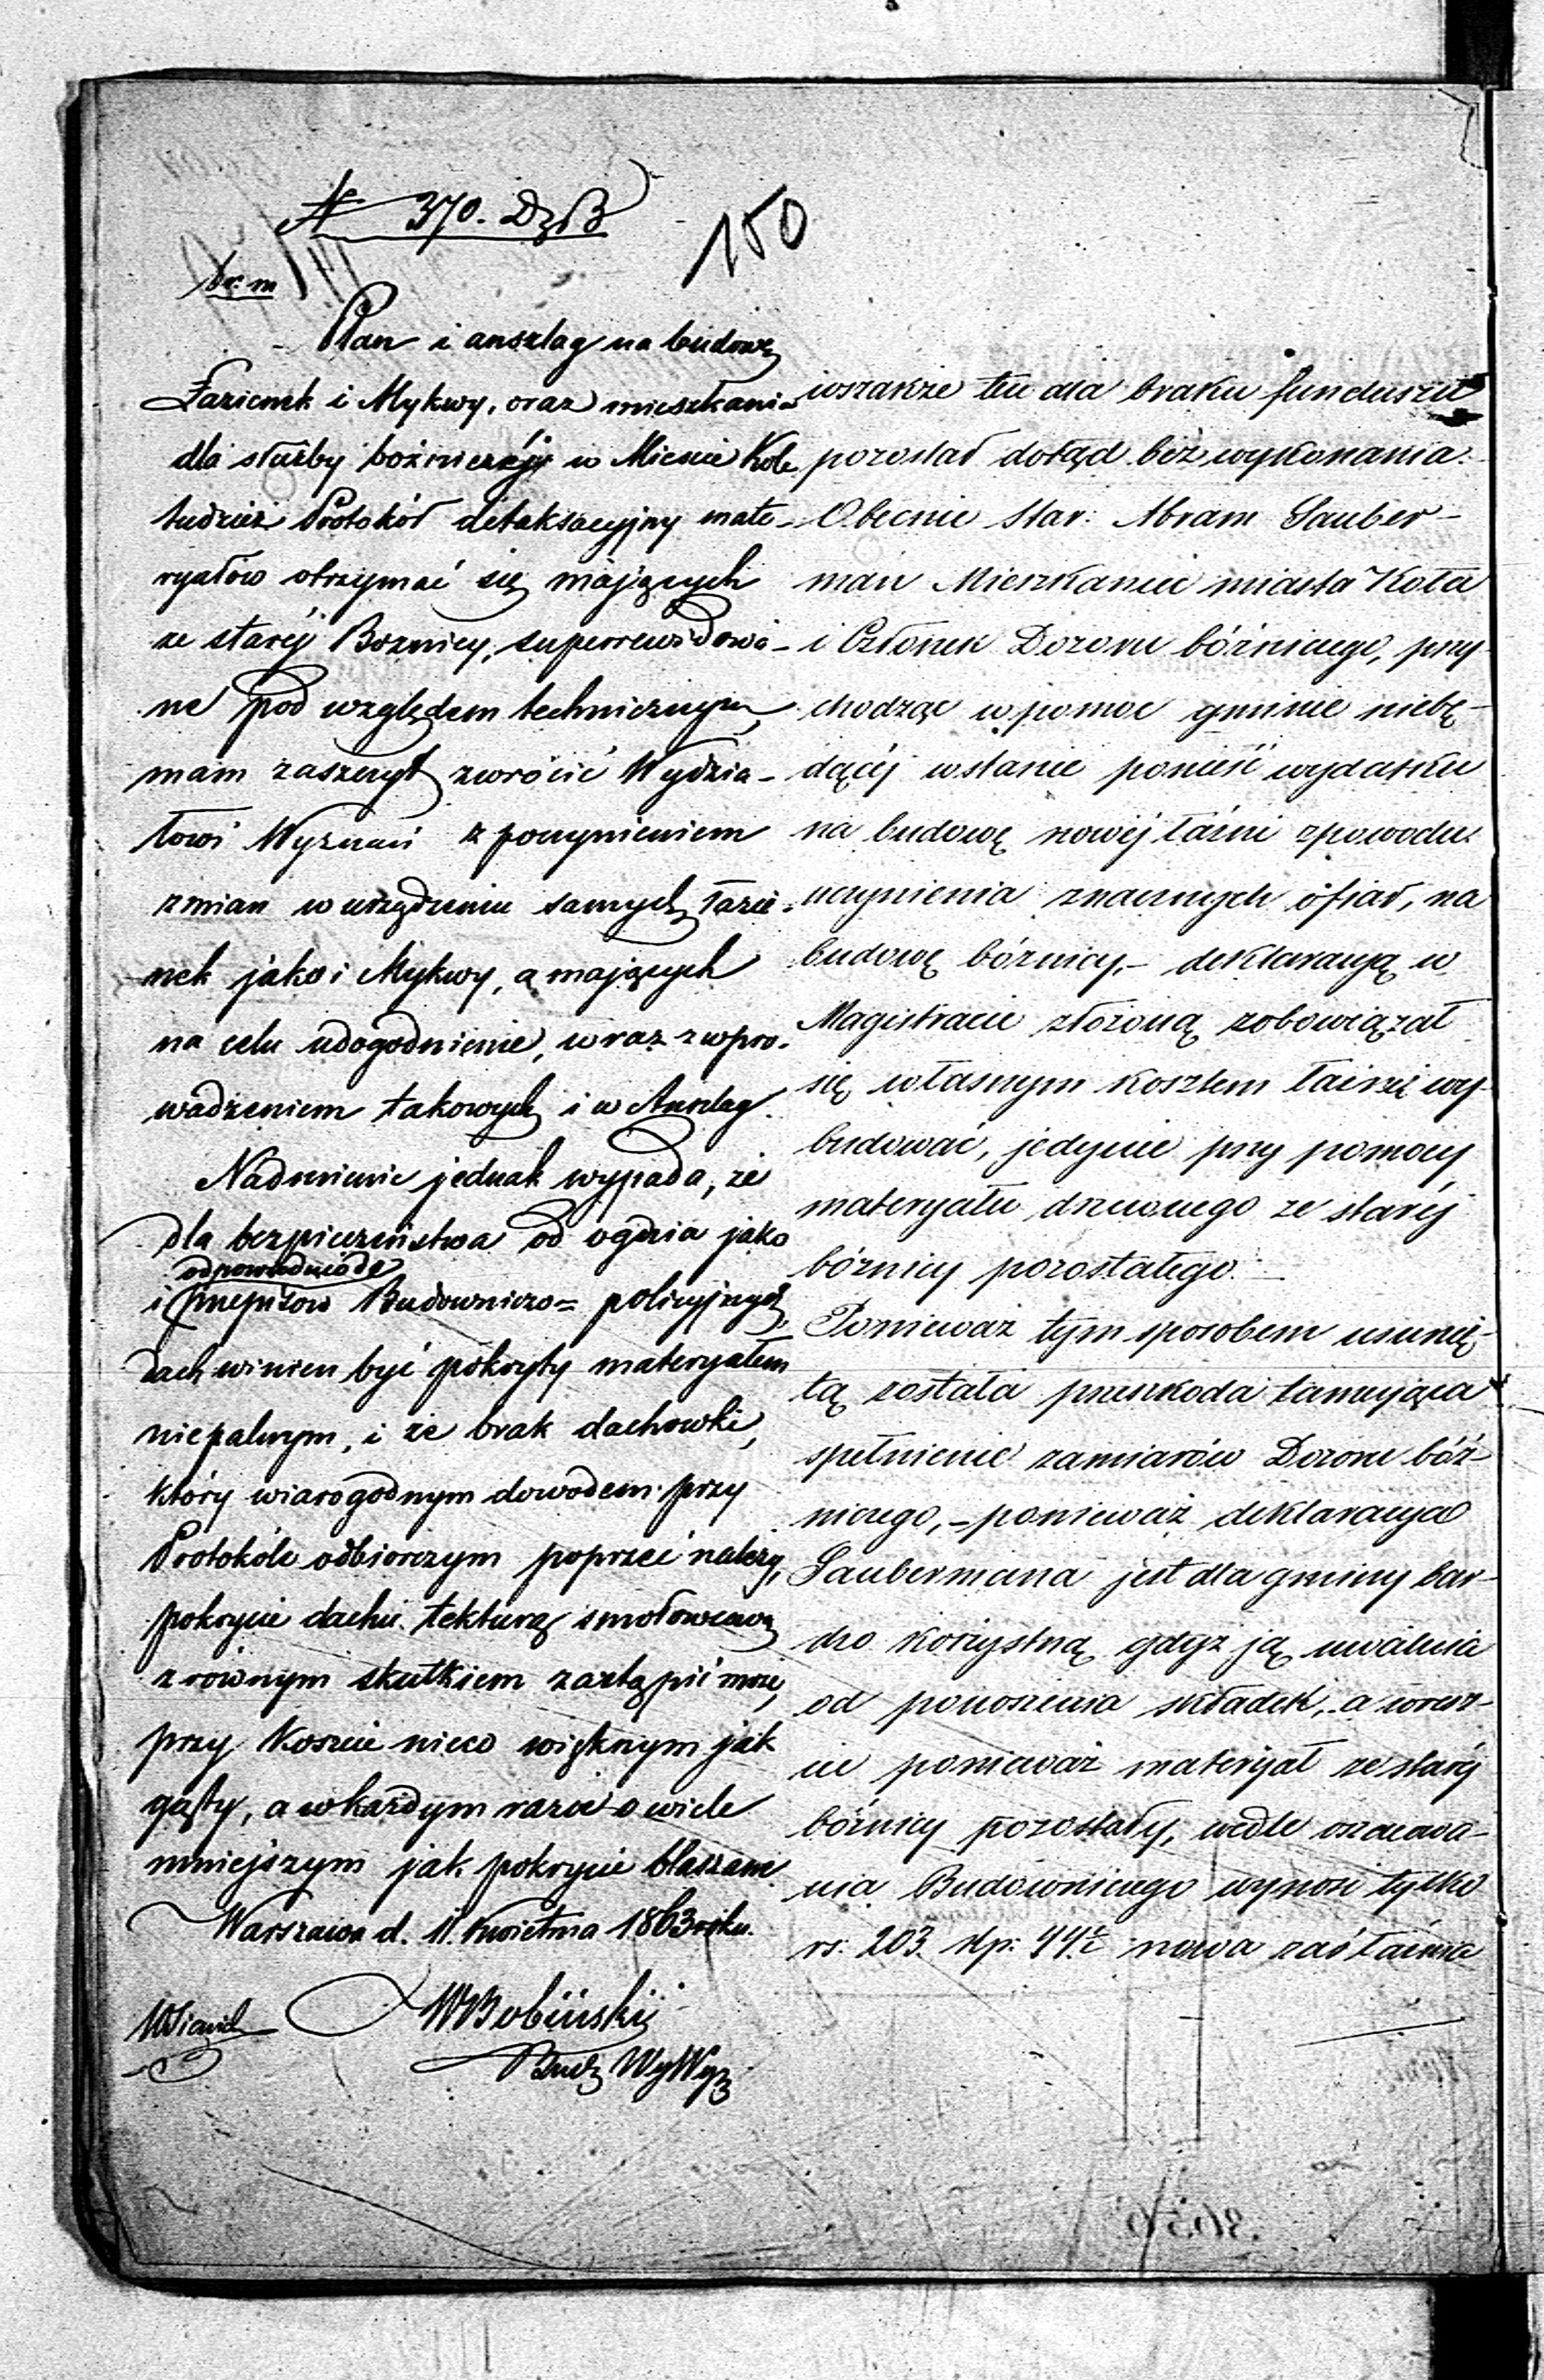 № 370. DzB
150
Dr. m
Plan i anszlag na budowę
Łazienek i Mykwy, oraz mieszkania
dla służby bóżniczéj w Mieście Kole
tudzież Protokół detaksacyjny mate-
ryałów otrzymać się mających
ze staréj Bożnicy, superrewidowa-
ne pod względem technicznym,
mam zaszczyt zwrócić Wydzia-
łowi Wyznań z poczynieniem
zmian w urządzeniu samych łazie-
nek jako i Mykwy, a mających
na celu udogodnienie, wraz z wpro-
wadzeniem takowych i w Anszlag.
Nadmienić jednak wypada, że
dla bezpieczeństwa od ognia jako
odpowiednio do
i przepisów Budowniczo= policyjnych,
dach winien być pokryty materyałem
niepalnym, i że brak dachówki,
który wiarogodnym dowodem przy
Protokóle odbiorczym poprzeć należy,
pokrycie dachu tekturą smołowcową
z równym skutkiem zastąpić może,
przy koszcie nieco większym jak
gąty, a w każdym razie o wiele
mniejszym jak pokrycie blaszane.
Warszawa d. 11. Kwietnia 1863 roku.
WBobiński
Bud WyWyz
wszakże tu dla braku funduszu
pozostał dotąd bez wykonania.
Obecnie Star: Abram Sauber-
man Mieszkaniec miasta Koła
i Członek Dozoru bóżniczego, przy-
chodząc w pomoc gminie niebę-
dącéj wstanie ponieść wydatku
na budowę nowéj łaźni zpowodu
uczynienia znacznych ofiar, na
budowę bóżnicy,- deklaracyą w
Magistracie złożoną zobowiązał
się własnym kosztem łaźnię wy-
budować, jedynie przy pomocy
materyału drzewnego ze staréj
bóżnicy pozostałego.
Ponieważ tym sposobem usunię-
tą została przeszkoda tamująca
spełnienie zamiarów Dozoru bóż-
niczego,- ponieważ deklaracya
Saubermana jest dla gminy bar-
dzo korzystną gdyż ją uwalnia
od ponoszenia składek, a wresz-
cie ponieważ materyał ze staréj
bóżnicy pozostały, wedle oszacowa-
nia Budowniczego wynosi tylko
rs. 203. kp: 44½ nowa zaś łaźnia